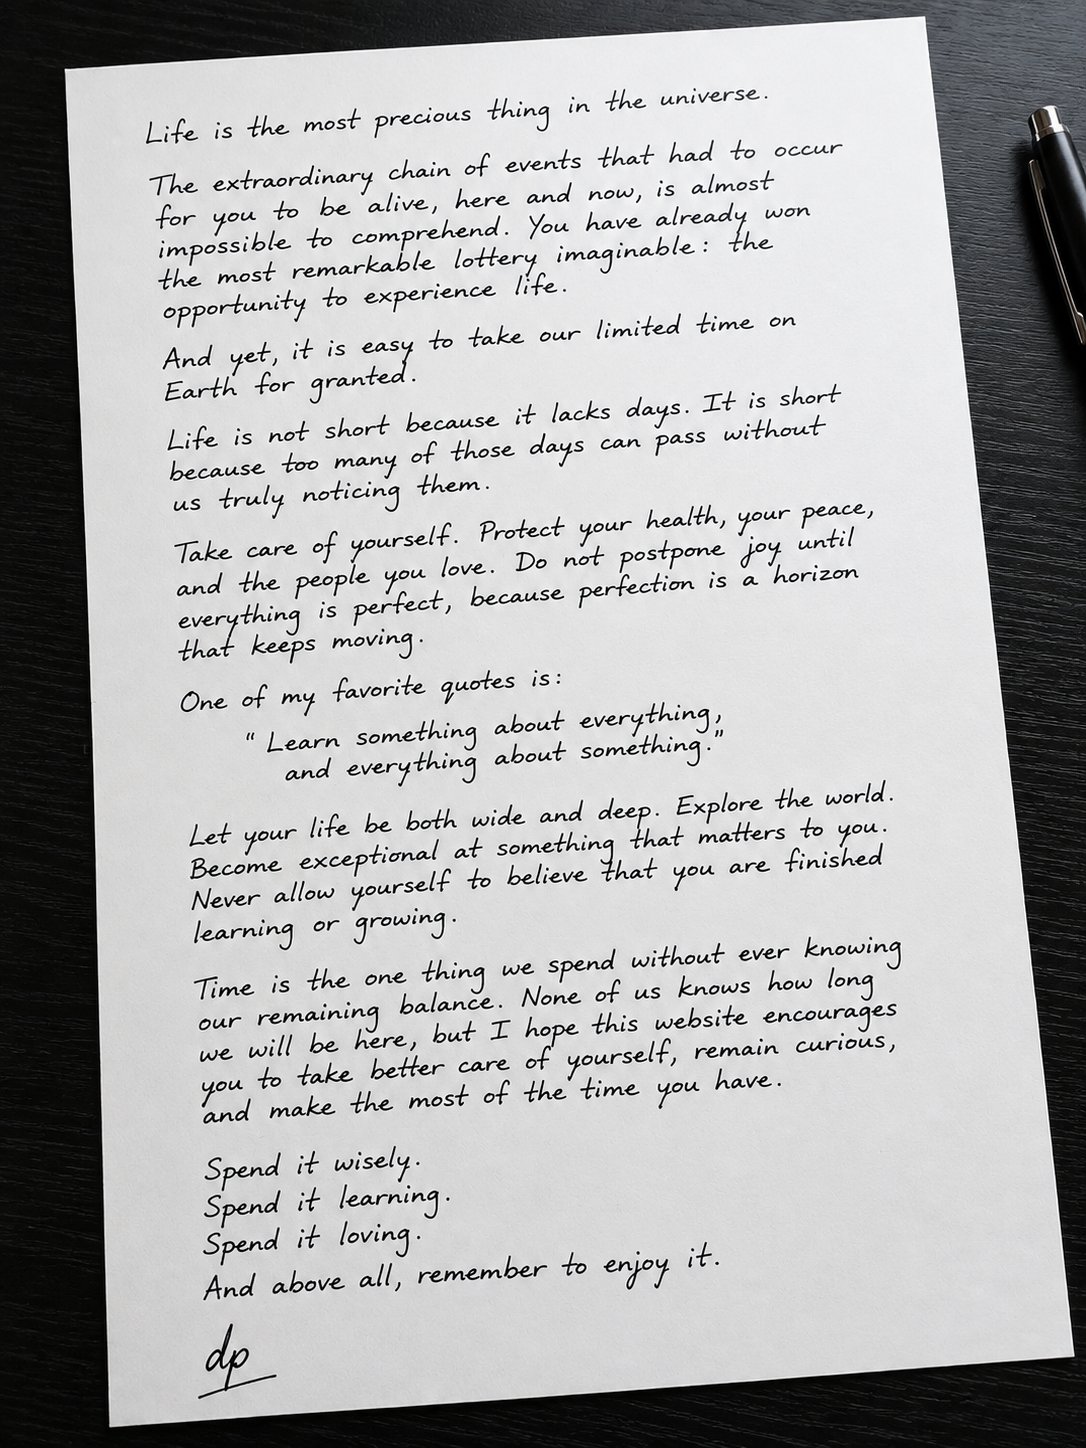 Life is the most precious thing in the universe.
The extraordinary chain of events that had to occur
for you to be alive, here and now, is almost
impossible to comprehend. You have already won
the most remarkable lottery imaginable: the
opportunity to experience life.
And yet, it is easy to take our limited time on
Earth for granted.
Life is not short because it lacks days. It is short
because too many of those days can pass without
us truly noticing them.
Take care of yourself. Protect your health, your peace,
and the people you love. Do not postpone joy until
everything is perfect, because perfection is a horizon
that keeps moving.
One of my favorite quotes is:
"Learn something about everything,
and everything about something."
Let your life be both wide and deep. Explore the world.
Become exceptional at something that matters to you.
Never allow yourself to believe that you are finished
learning or growing.
Time is the one thing we spend without ever knowing
our remaining balance. None of us knows how long
we will be here, but I hope this website encourages
you to take better care of yourself, remain curious,
and make the most of the time you have.
Spend it wisely.
Spend it learning.
Spend it loving.
And above all, remember to enjoy it.
dp